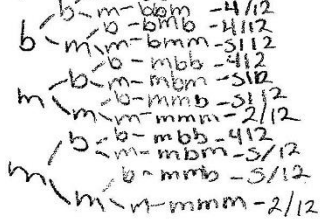 b m - bbm - 4/12
b b - bmb - 4/12
b m m - bmm - 5/12
b - mbb - 4/12
b m - mbm - 5/12
m b - mmb - 5/12
m m - mmm - 2/12
b b - mbb - 4/12
m - mbm - 5/12
m b - mmb - 5/12
m m - mmm - 2/12